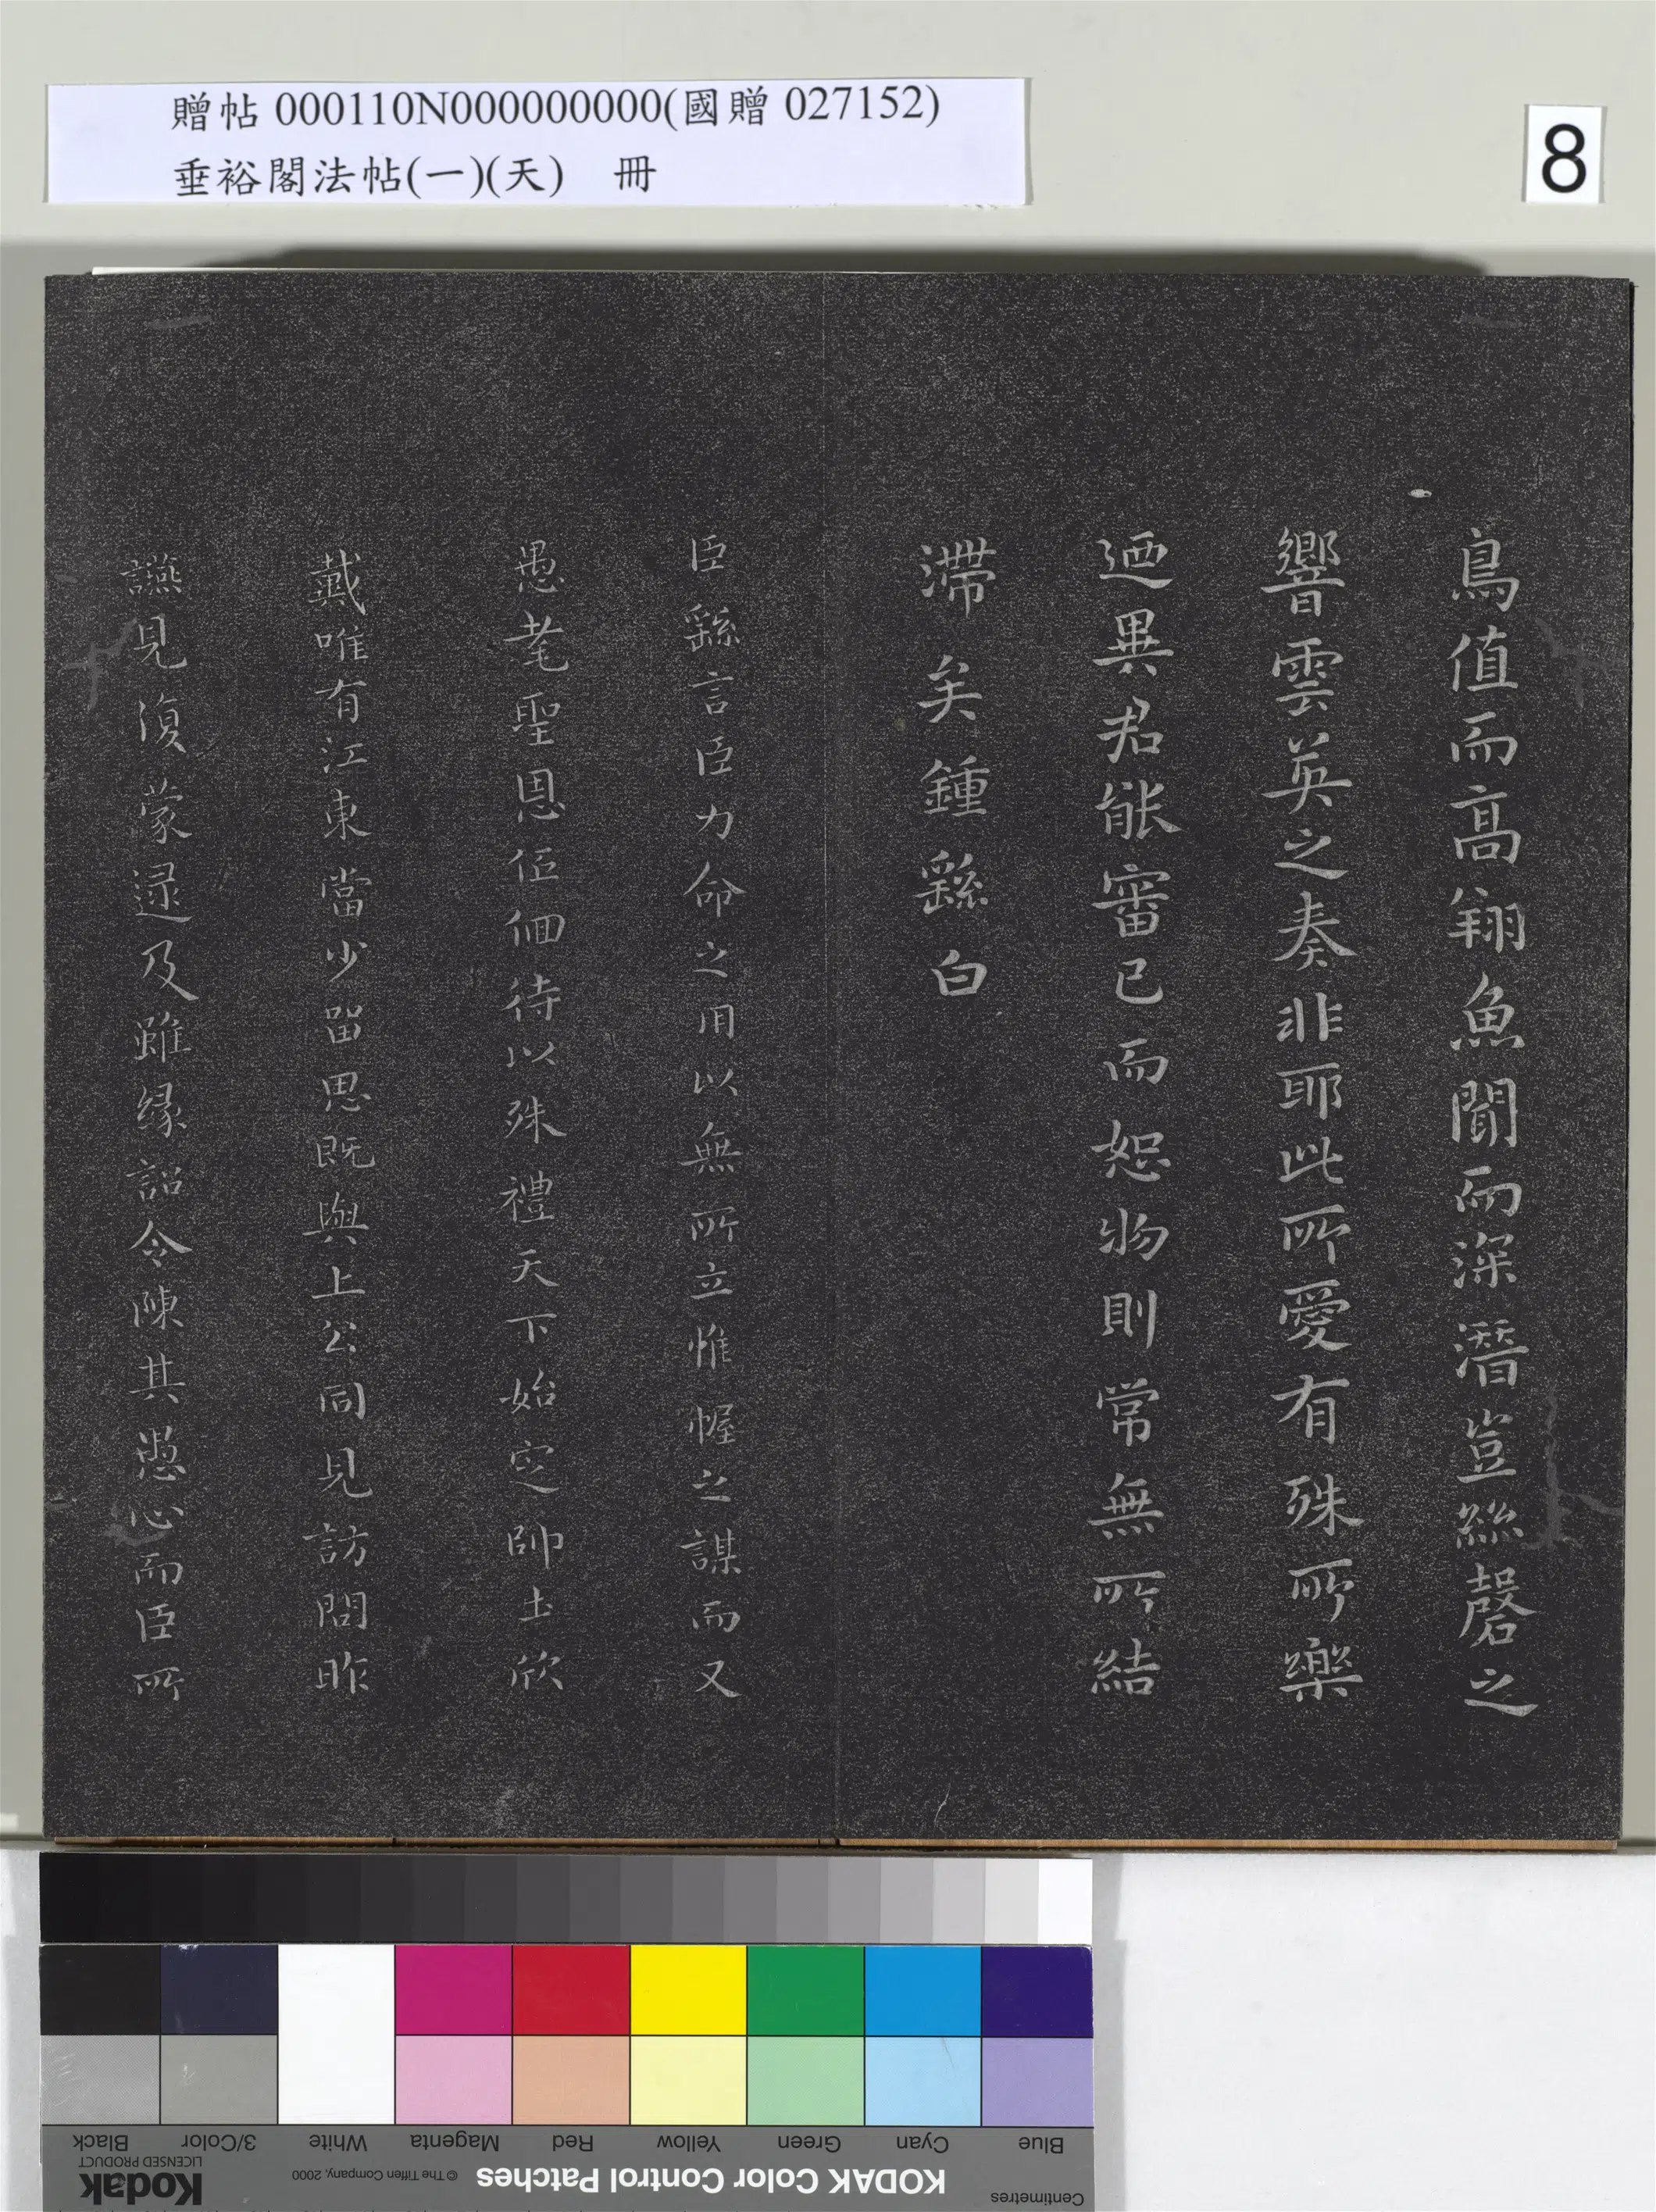 贈帖 000110N000000000(國贈 027152)
垂裕閣法帖(一)(天) 冊
8
鳥值而高翔魚聞而深潛豈絲磬之
響雲英之奏非耶此所愛有殊所樂
迺異君能審己而恕物則常無所結
滯矣鍾繇白
臣繇言臣力命之用以無所立惟幄之謀而又
愚耄聖恩佰佪待以殊禮天下始定帥土欣
戴唯有江東當少留思既與上公同見訪問昨
讌見復蒙逯及雖緣詔令陳其愚心而臣所
Black
3/Color
White
Magenta
Red
Yellow
Green
Cyan
Blue
Kodak
LICENSED PRODUCT
© The Tiffen Company, 2000
KODAK Color Control Patches
Centimetres